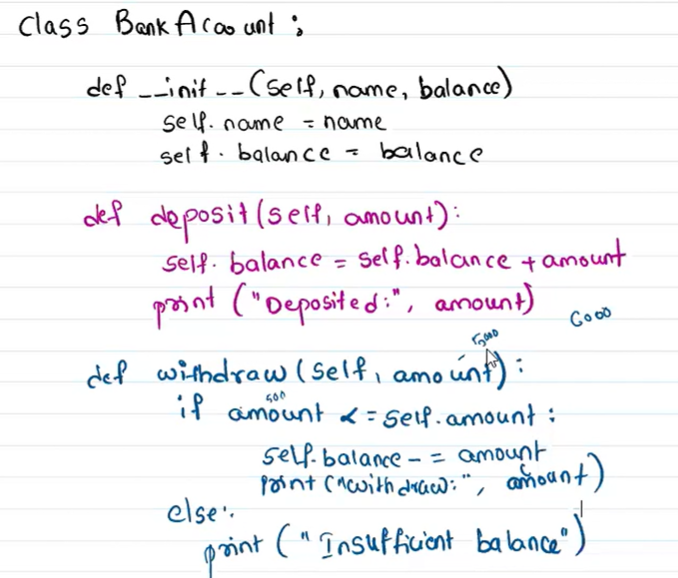 Class BankAccount :
def __init__(self, name, balance)
self.name = name
self.balance = balance
def deposit(self, amount):
self.balance = self.balance + amount
print ("Deposited:", amount)
6000
5000
def withdraw(self, amount):
500
if amount <= self.amount :
self.balance -= amount
print ("withdraw:", amount)
else:
print ("Insufficient balance")